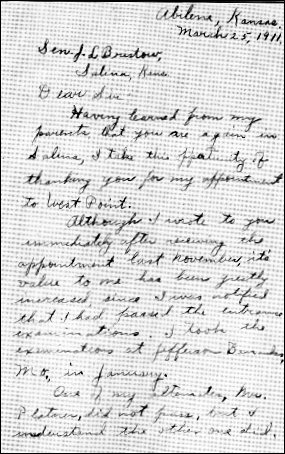 Abilene, Kansas,
March 25, 1911
Sen. J. L. Bristow,
Salina, Kans.
Dear Sir:
Having learned from my
parents that you are again in
Salina, I take this opportunity of
thanking you for my appointment
to West Point.
Although I wrote to you
immediately after receiving the
appointment last November, it's
value to me has been greatly
increased, since I was notified
that I had passed the entrance
examinations. I took the
examination at Jefferson Barracks,
Mo., in January.
One of my alternates, Mr.
Platner, did not pass, but I
understand the other one did.